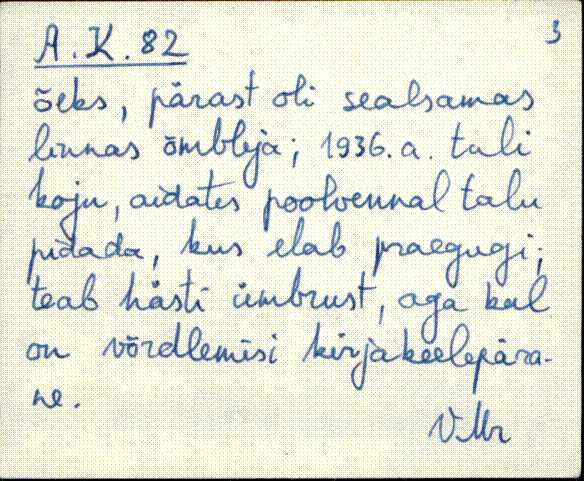 A.K.82
3
õeks, pärast oli sealsamas
linnas õmbleja; 1936.a. tuli
koju, aidates poolvennal talu
pidada, kus elab praegugi;
teab hästi ümbrust, aga keel
on võrdlemisi kirjakeelepära-
ne.
VMr